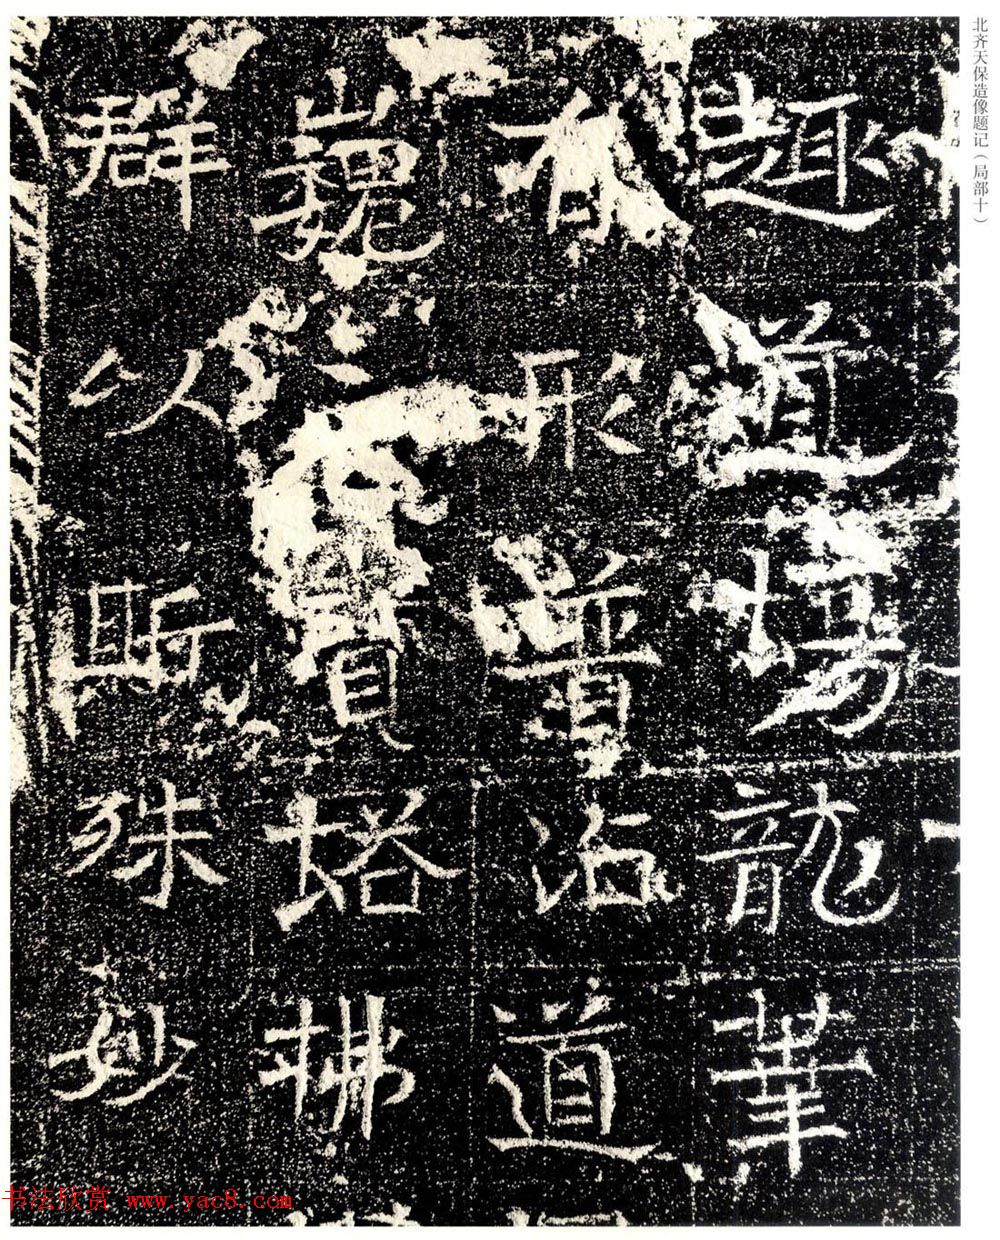 北齐天保造像题记（局部十）
趣道場龍華
有形普沾道
巍寶塔拂
群以斯殊妙
书法欣赏 www.yac8.com